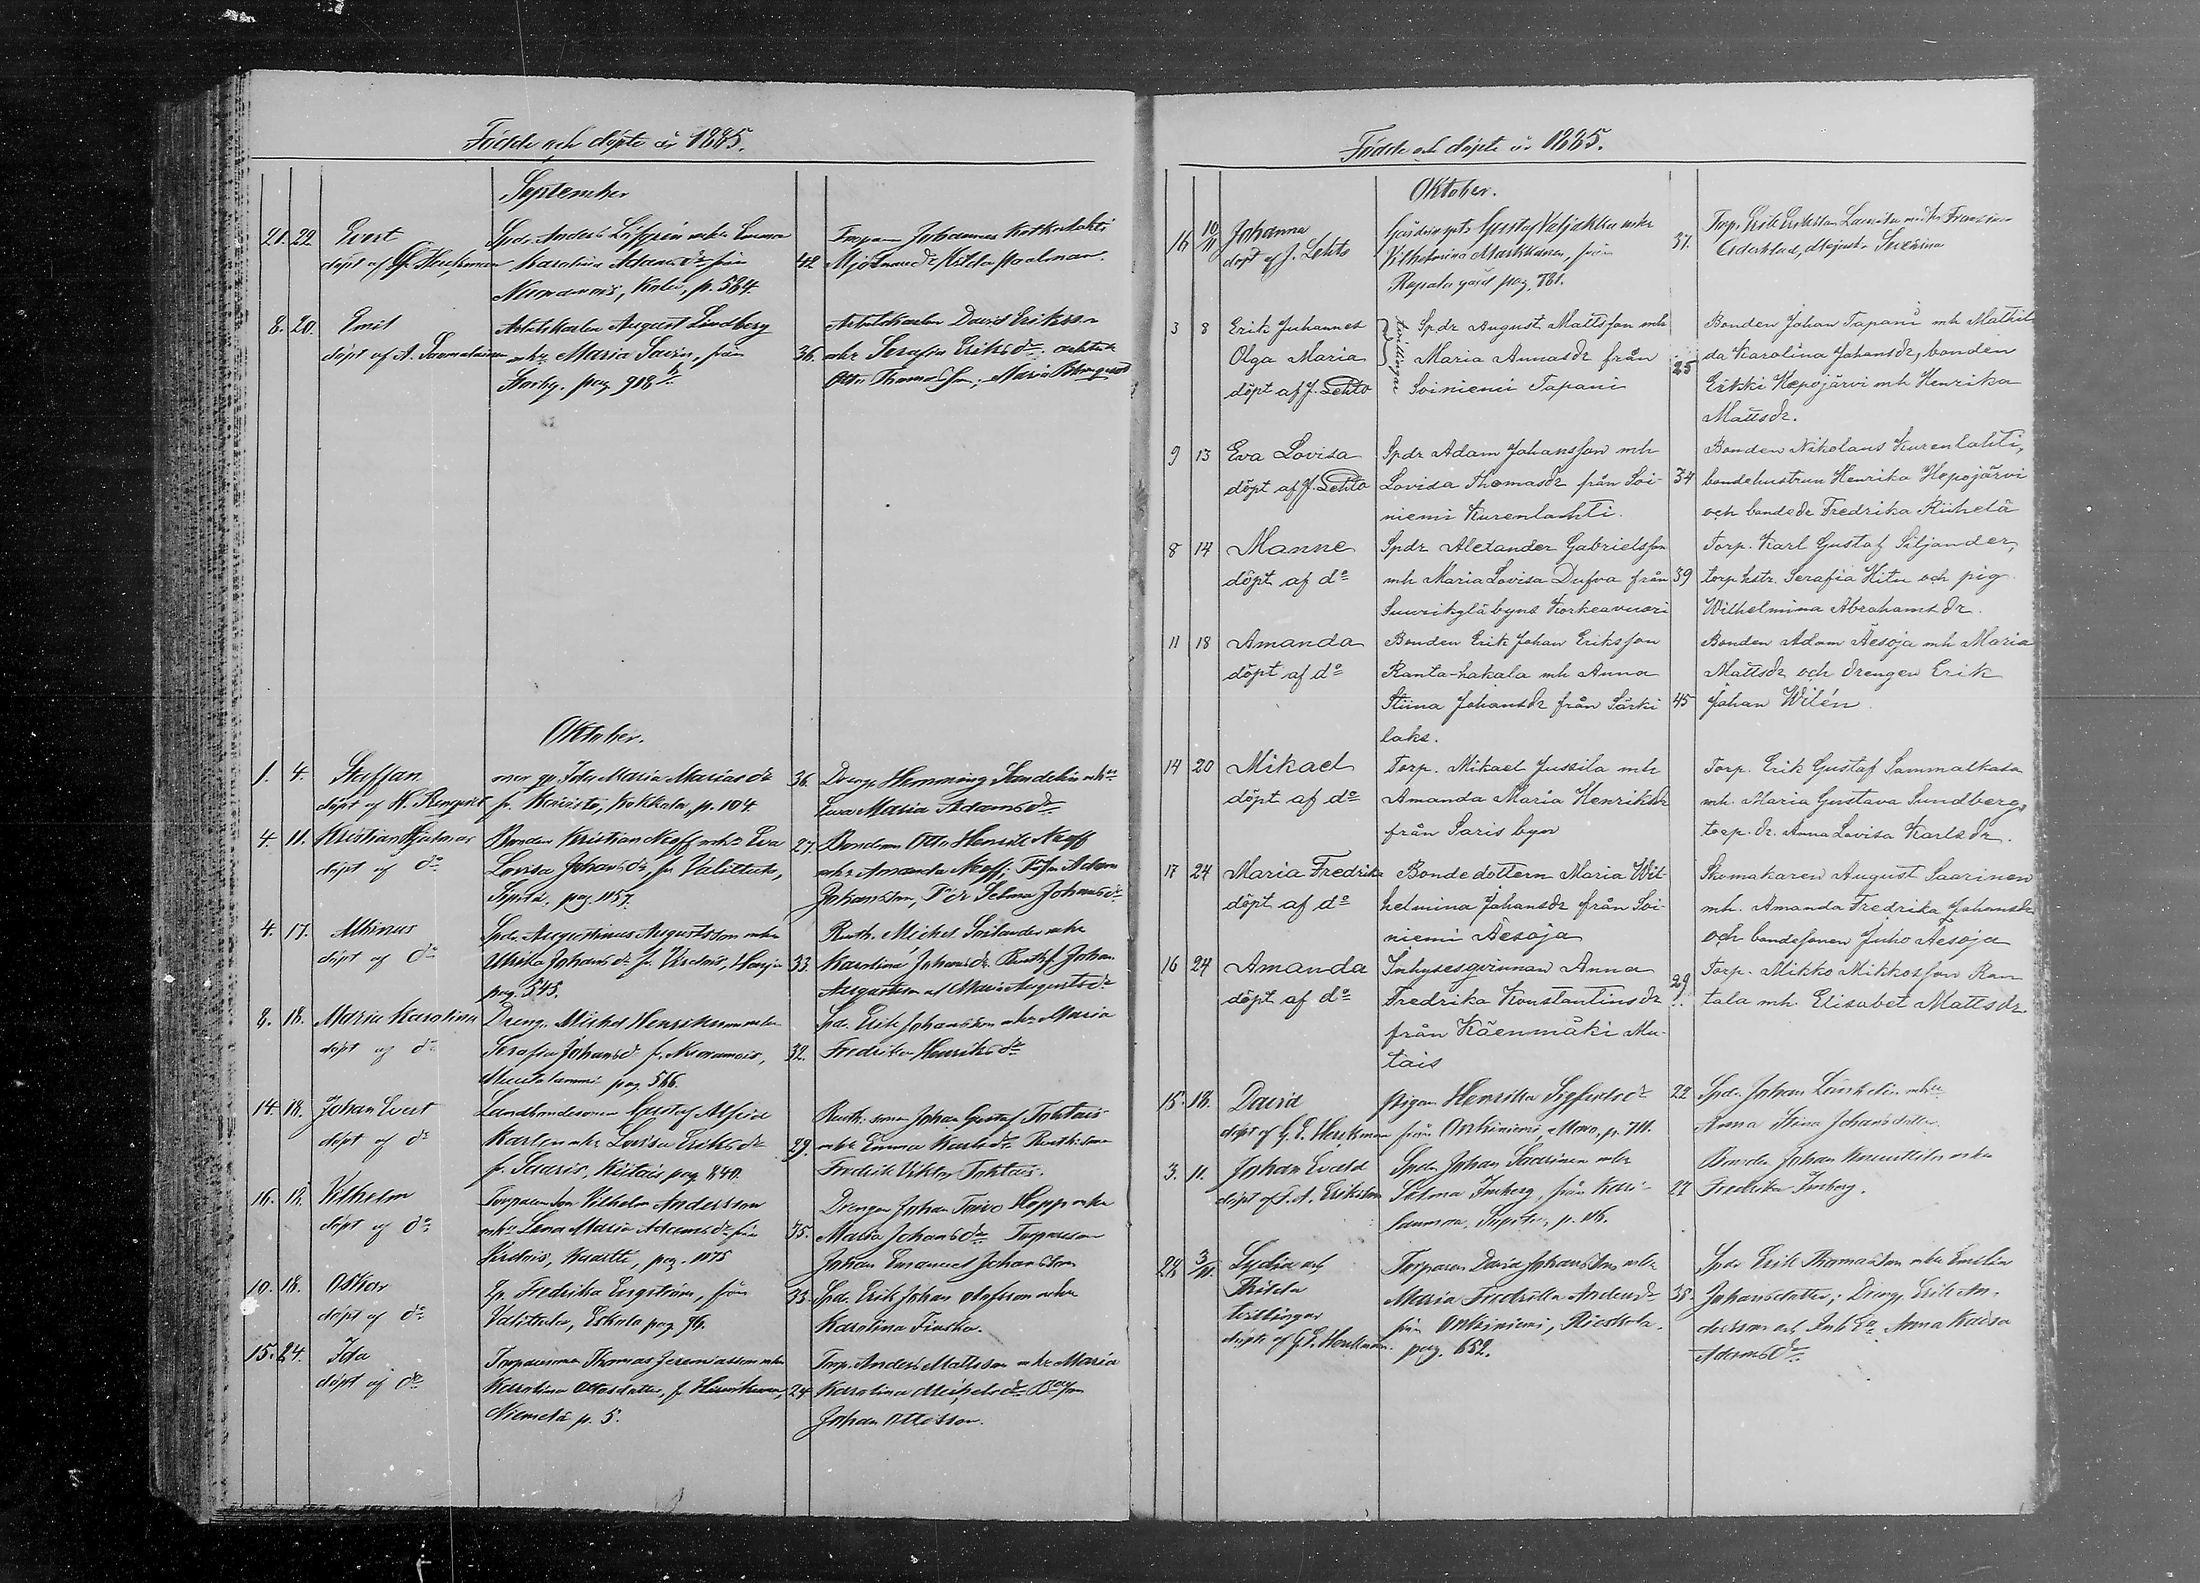 Födde och döpte år 1885.
September
21. 22. Evert
döpt af Heurkman
Spdr. Anders mhu Emma
Karolina Adamsdr från
Numanois, p. 584.
42
Torparen Johannes
8. 20. Emil
döpt af A. Saomalainen
Arbetskarlen August Lindberg
mhu Maria från
Storby. pag 918
36.
Arbetskarlen David Eriksson
mhu Serafia Eriksdr:
Otto Thomasson; Maria
Oktober.
1. 4. Staffan
döpt af H. Renqvist
Ida Maria Mariasdr
fr. Kaivisto, Kokkola, p. 104.
36.
Dreng. Hemming Sandelin mhu
Eva Maria Adamsdr
4. 11. Kristian Hjalmar
döpt af do
Bonden Kristian Neoff mhu Eva
Lovisa Johansdr, fr Valittula,
Seppälä, pag. 1157.
27.
Bonden Otto Henrik Neoff
mhu Amanda Neoff; Adam
Johansson, Selma Johansdr
4. 17. Albinus
döpt af do
Spdr. Augustinus Augustsson mhu
Ulrika Johansdr fr. Harju
pag. 545.
33.
Rusth. Michel Soilander mhu
Karolina Johansdr. Rusth. Johan
Augustsson och Maria Augustsdr
8. 18. Maria Karolina
döpt af do
Dreng. Michel Henriksson mhu
Serafia Johansdr f. Numanois,
pag. 566.
32.
Spdr. Erik Johansson mhu Maria
Fredrika Henriksdr
14. 18. Johan Evert
döpt af do
Landbondesonen Gustaf Alfred
Karlen mhu Lovisa Eriksdr
f. Saaris, Kiitois pag. 840.
29.
Rusth. sonen Johan Gustaf Toktais
mhu Emma Karlsdr. Rusth. son
Fredrik Viktor Toktais.
16. 18. Vilhelm
döpt af do
Torparesonen Vilhelm Andersson
mhu Lena Maria Adamsdr från
pag. 1075
35.
Drengen Johan Toivo Hopp mhu
Maria Johansdr Torpareson
Johan Emanuel Johansson
10. 18. Oskar
döpt af do
Fredrika Engström, från
Valittula, Eskola pag. 96.
33.
Spdr. Erik Johan mhu
Karolina Finska.
15. 24. Ida
döpt af do
Torparesonen Thomas Jeremiasson mhu
Karolina Ottosdotter, f.
Niemelä p. 5.
24
Torp. Anders Mattsson mhu Maria
Karolina Michelsdr
Johan Ottosson.
Födde och döpte år 1885.
Oktober.
16 10/11 Johanna
döpt af J. Lehto
Gustaf mhu
Vilhelmina Markkanen, från
Repola gård pag. 781.
37.
Torp. Erik Eriksson
Severina
3 8 Erik Johannes
Olga Maria
döpt af J. Lehto
tvillingar
Spdr August Mattsson mh
Maria Annasdr från
Soiniemi Tapani
25
Bonden Johan Tapani mh Mathil
da Karolina Johansdr, bonden
Erikki Hepojärvi mh Henrika
Mattsdr.
9 13 Eva Lovisa
döpt af J. Lehto
Spdr Adam Johansson mh
Lovisa Thomasdr från Soi-
niemi Kurenlahti.
34
Bonden Nikolaus Kurenlahti,
bondehustrun Henrika Hepojärvi
och bondedr Fredrika Riihelä
8 14 Manne
döpt af do
Spdr Alexander Gabrielsson
mh Maria Lovisa Dufva från
Suurikylä byns Korkeavuori
39
Torp. Karl Gustaf Siljander,
torp.hstr. Serafia Hitu och pig
Wilhelmina Abrahamsdr.
11 18 Amanda
döpt af do
Bonden Erik Johan Eriksson
Ranta-hakala mh Anna
Stiina Johansdr från Särki
laks.
45
Bonden Adam Äesoja mh Maria
Mattsdr och drengen Erik
Johan Wilén
14 20 Mikael
döpt af do
Torp. Mikael Jussila mh
Amanda Maria Henriksdr
från Saris byn
Torp. Erik Gustaf Sammalkala
mh. Maria Gustava Sundberg,
torp. dr. Anna Lovisa Karlsdr.
17 24 Maria Fredrika
döpt af do
Bondedottern Maria Wil-
helmina Johansdr från Soi-
niemi Äesoja
Skomakaren August Saarinen
mh. Amanda Fredrika Johansdr
och bondesonen Juho Äesoja
16 24 Amanda
döpt af do
Inhysesqvinnan Anna
Fredrika Konstantinsdr
från Käenmäki Mu-
tais
29
Torp. Mikko Mikkosson Ran
tala mh Elisabet Mattsdr.
15. 18. David
döpt af G. E. Heurkman
Pigan Henrika Sigfridsdr
från Onkiniemi, p. 711.
22
Spdr. Johan mhu
Anna Stina Johansdotter.
3. 11. Johan Evald
döpt af F. A. Eriksson
Spdr. Johan Saarinen mhu
Salma Imberg, från Kari-
27
Bonden Johan mhu
Fredrika Imberg.
28 3/11. Lydia och
Hilda
tvillingar
döpte af G. E. Heurkman.
Torparen David Johansson mhu
Maria Fredrika Andersdr
från Onkiniemi,
pag. 652.
38
Spdr Erik Thomasson mhu Emelia
Johansdotter; Dreng. Erik An-
dersson och Anna Kaisa
Adamsdr.